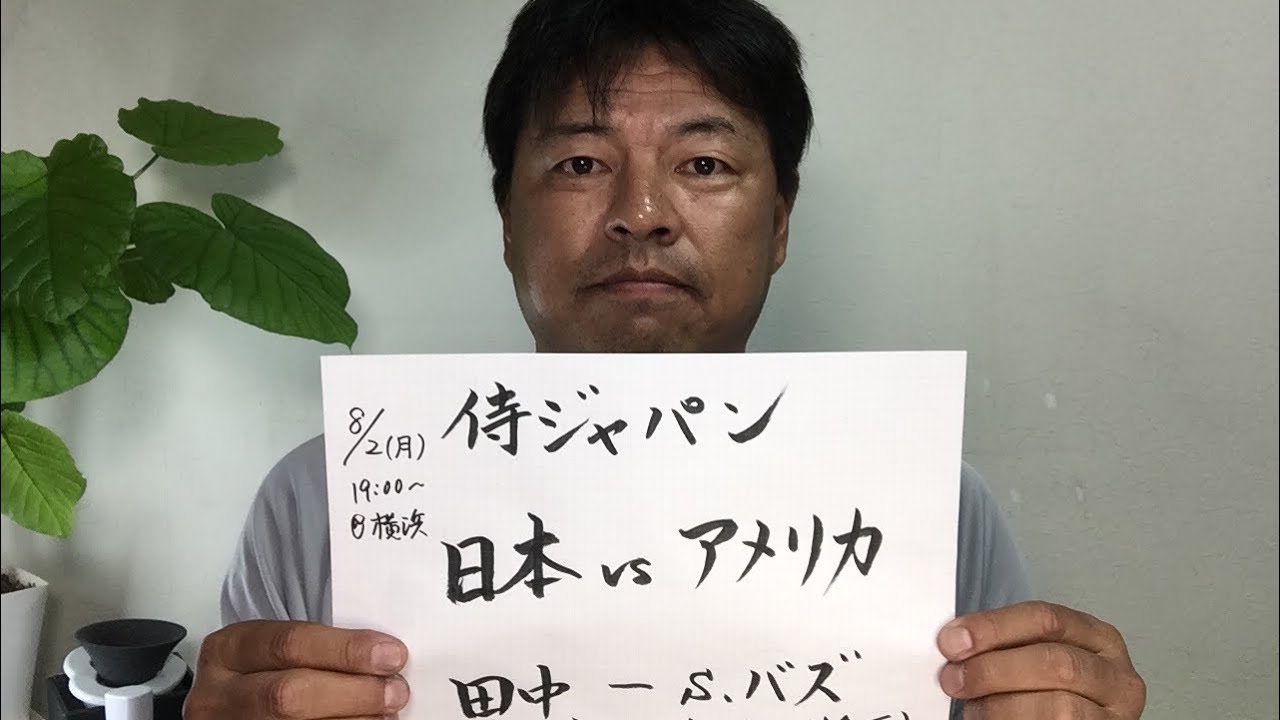 8/2(月)
19:00〜
@横浜
侍ジャパン
日本 vs アメリカ
田中 ー S.バズ